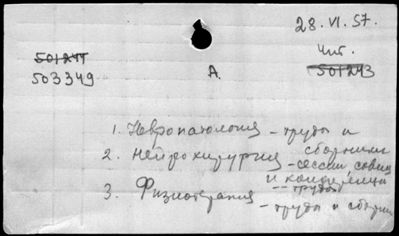 28.VI.57.
Чит.
501244
501243
503349
А.
1. Невропатология - труды и сборники
2. Нейрохирургия - сессии
и конференции
-- труды
3. Физиотерапия
- труды и сборн